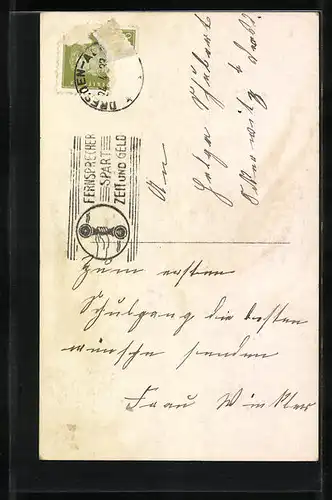 DRESDEN-A
FERNSPRECHER
SPART
ZEIT UND GELD
An
Helga Schubert
Zum ersten
Schulgang die besten
wünsche senden
Frau Winkler